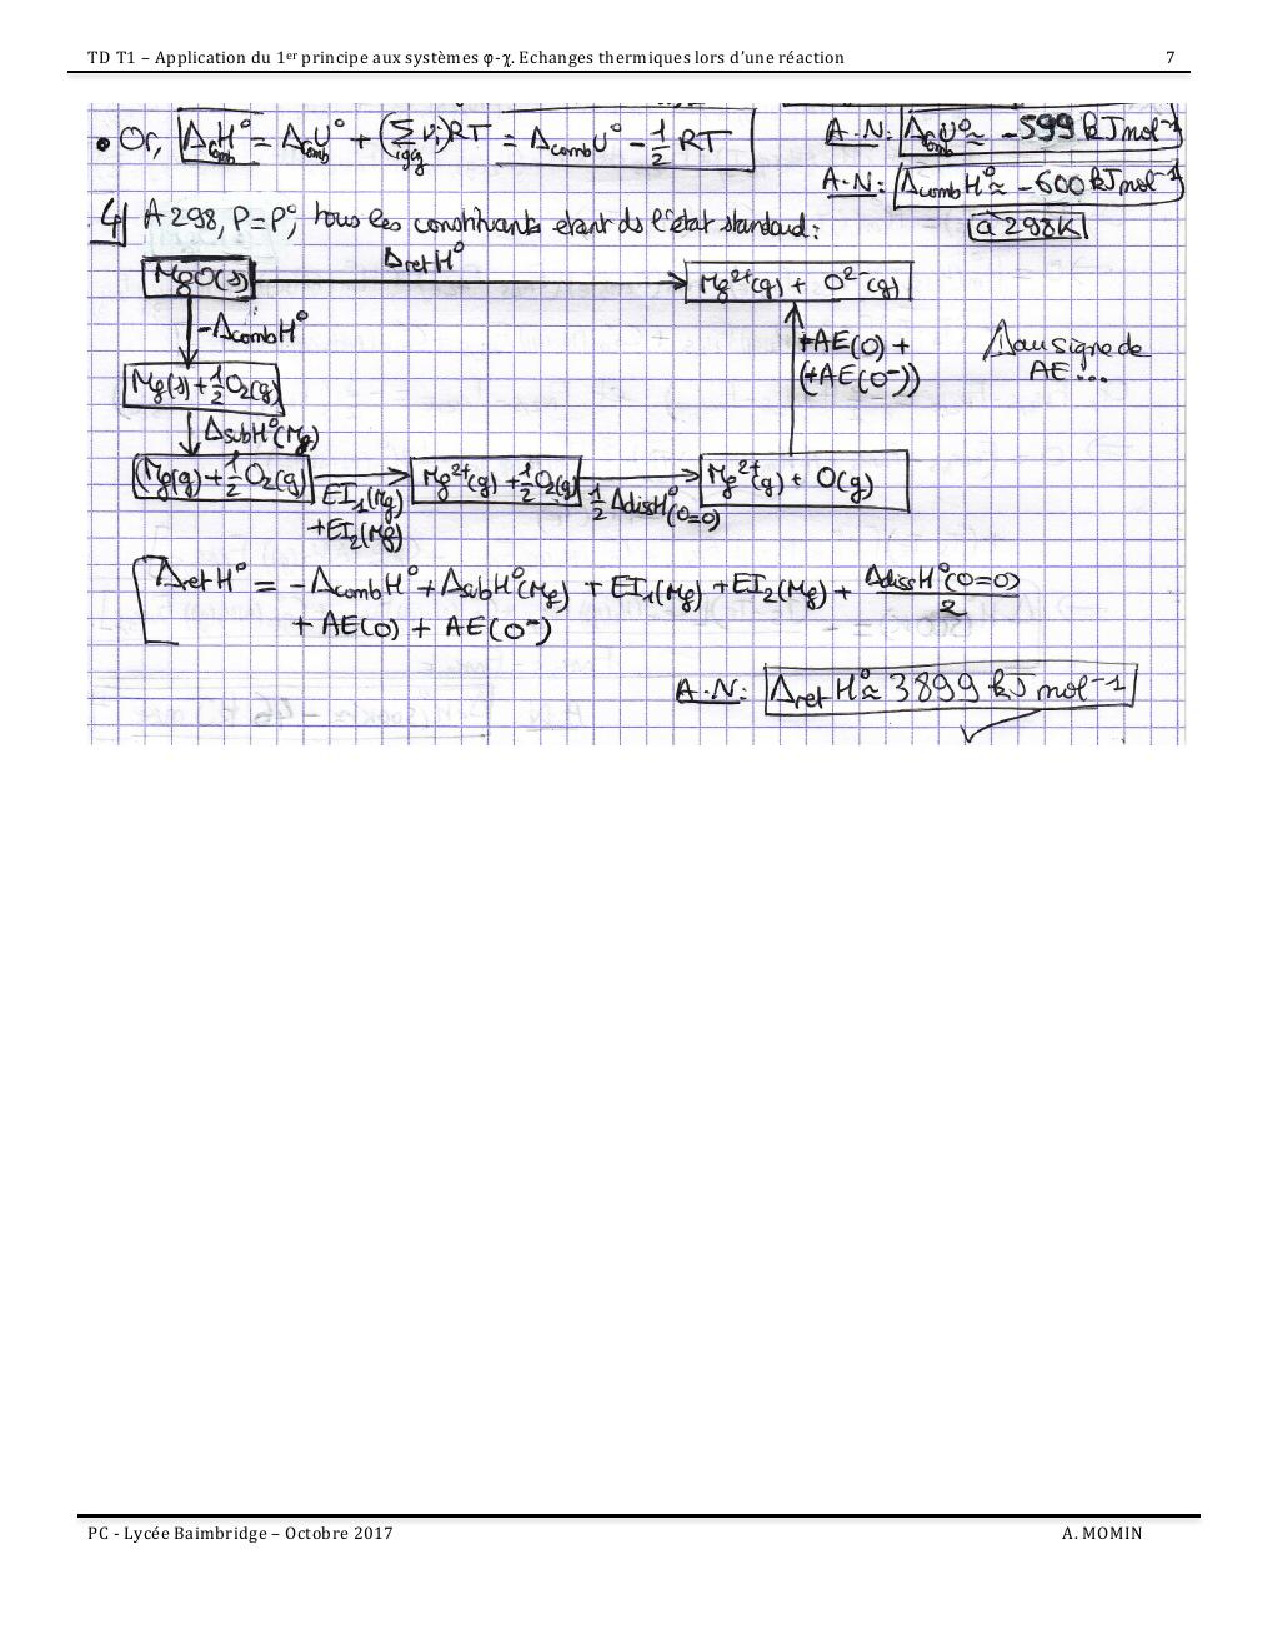 TD T1 – Application du 1er principe aux systèmes φ-χ. Echanges thermiques lors d'une réaction 7
• Or, ΔcombH° = ΔcombU° + (Σ νi)RT = ΔcombU° - 1/2 RT A.N: ΔcombU° ≈ -599 kJmol-1
igaz
A.N: ΔcombH° ≈ -600 kJmol-1
4) A 298, P=P°, tous les constituants etant ds l'état standard: à 298K
ΔretH°
MgO(s) Mg2+(g) + O2-(g)
-ΔcombH° +AE(O) + Δ au signe de
(+AE(O-)) AE...
Mg(s)+1/2 O2(g)
ΔsubH°(Mg)
Mg(g)+1/2 O2(g) Mg2+(g) + 1/2 O2(g) Mg2+(g) + O(g)
EI1(Mg) 1/2 ΔdissH°(O=O)
+EI2(Mg)
ΔretH° = -ΔcombH° + ΔsubH°(Mg) + EI1(Mg) + EI2(Mg) + ΔdissH°(O=O)/2
+ AE(O) + AE(O-)
A.N: ΔretH° ≈ 3899 kJ mol-1
PC - Lycée Baimbridge – Octobre 2017 A. MOMIN